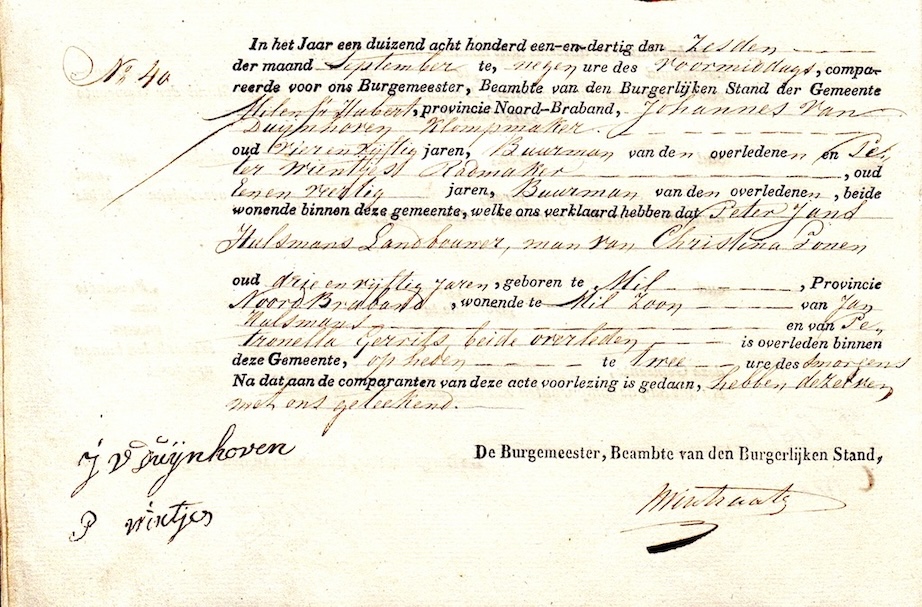 No 40
In het Jaar een duizend acht honderd een-en-dertig den Zesden
der maand September te, negen ure des voormiddags, compa-
reerde voor ons Burgemeester, Beambte van den Burgerlijken Stand der Gemeente
Mil en St Hubert, provincie Noord-Braband, Johannes van
Duijnhoven Klompmaker.
oud vier en vijftig jaren, Buurman van den overledenen en Pe-
ter Wientjes Radmaker, oud
Eenen veertig jaren, Buurman van den overledenen, beide
wonende binnen deze gemeente, welke ons verklaard hebben dat Peter Jans
Hulsmans Landbouwer, man van Christina
oud drie en vijftig jaren, geboren te Mil, Provincie
Noord Braband, wonende te Mil Zoon van Jan
Hulsmans en van Pe-
tronella Gerrits, beide overleden is overleden binnen
deze Gemeente, op heden te twee ure des smorgens
Na dat aan de comparanten van deze acte voorlezing is gedaan, hebben dezelven
met ons geteekend.
J v Duijnhoven
De Burgemeester, Beambte van den Burgerlijken Stand,
P wintjes